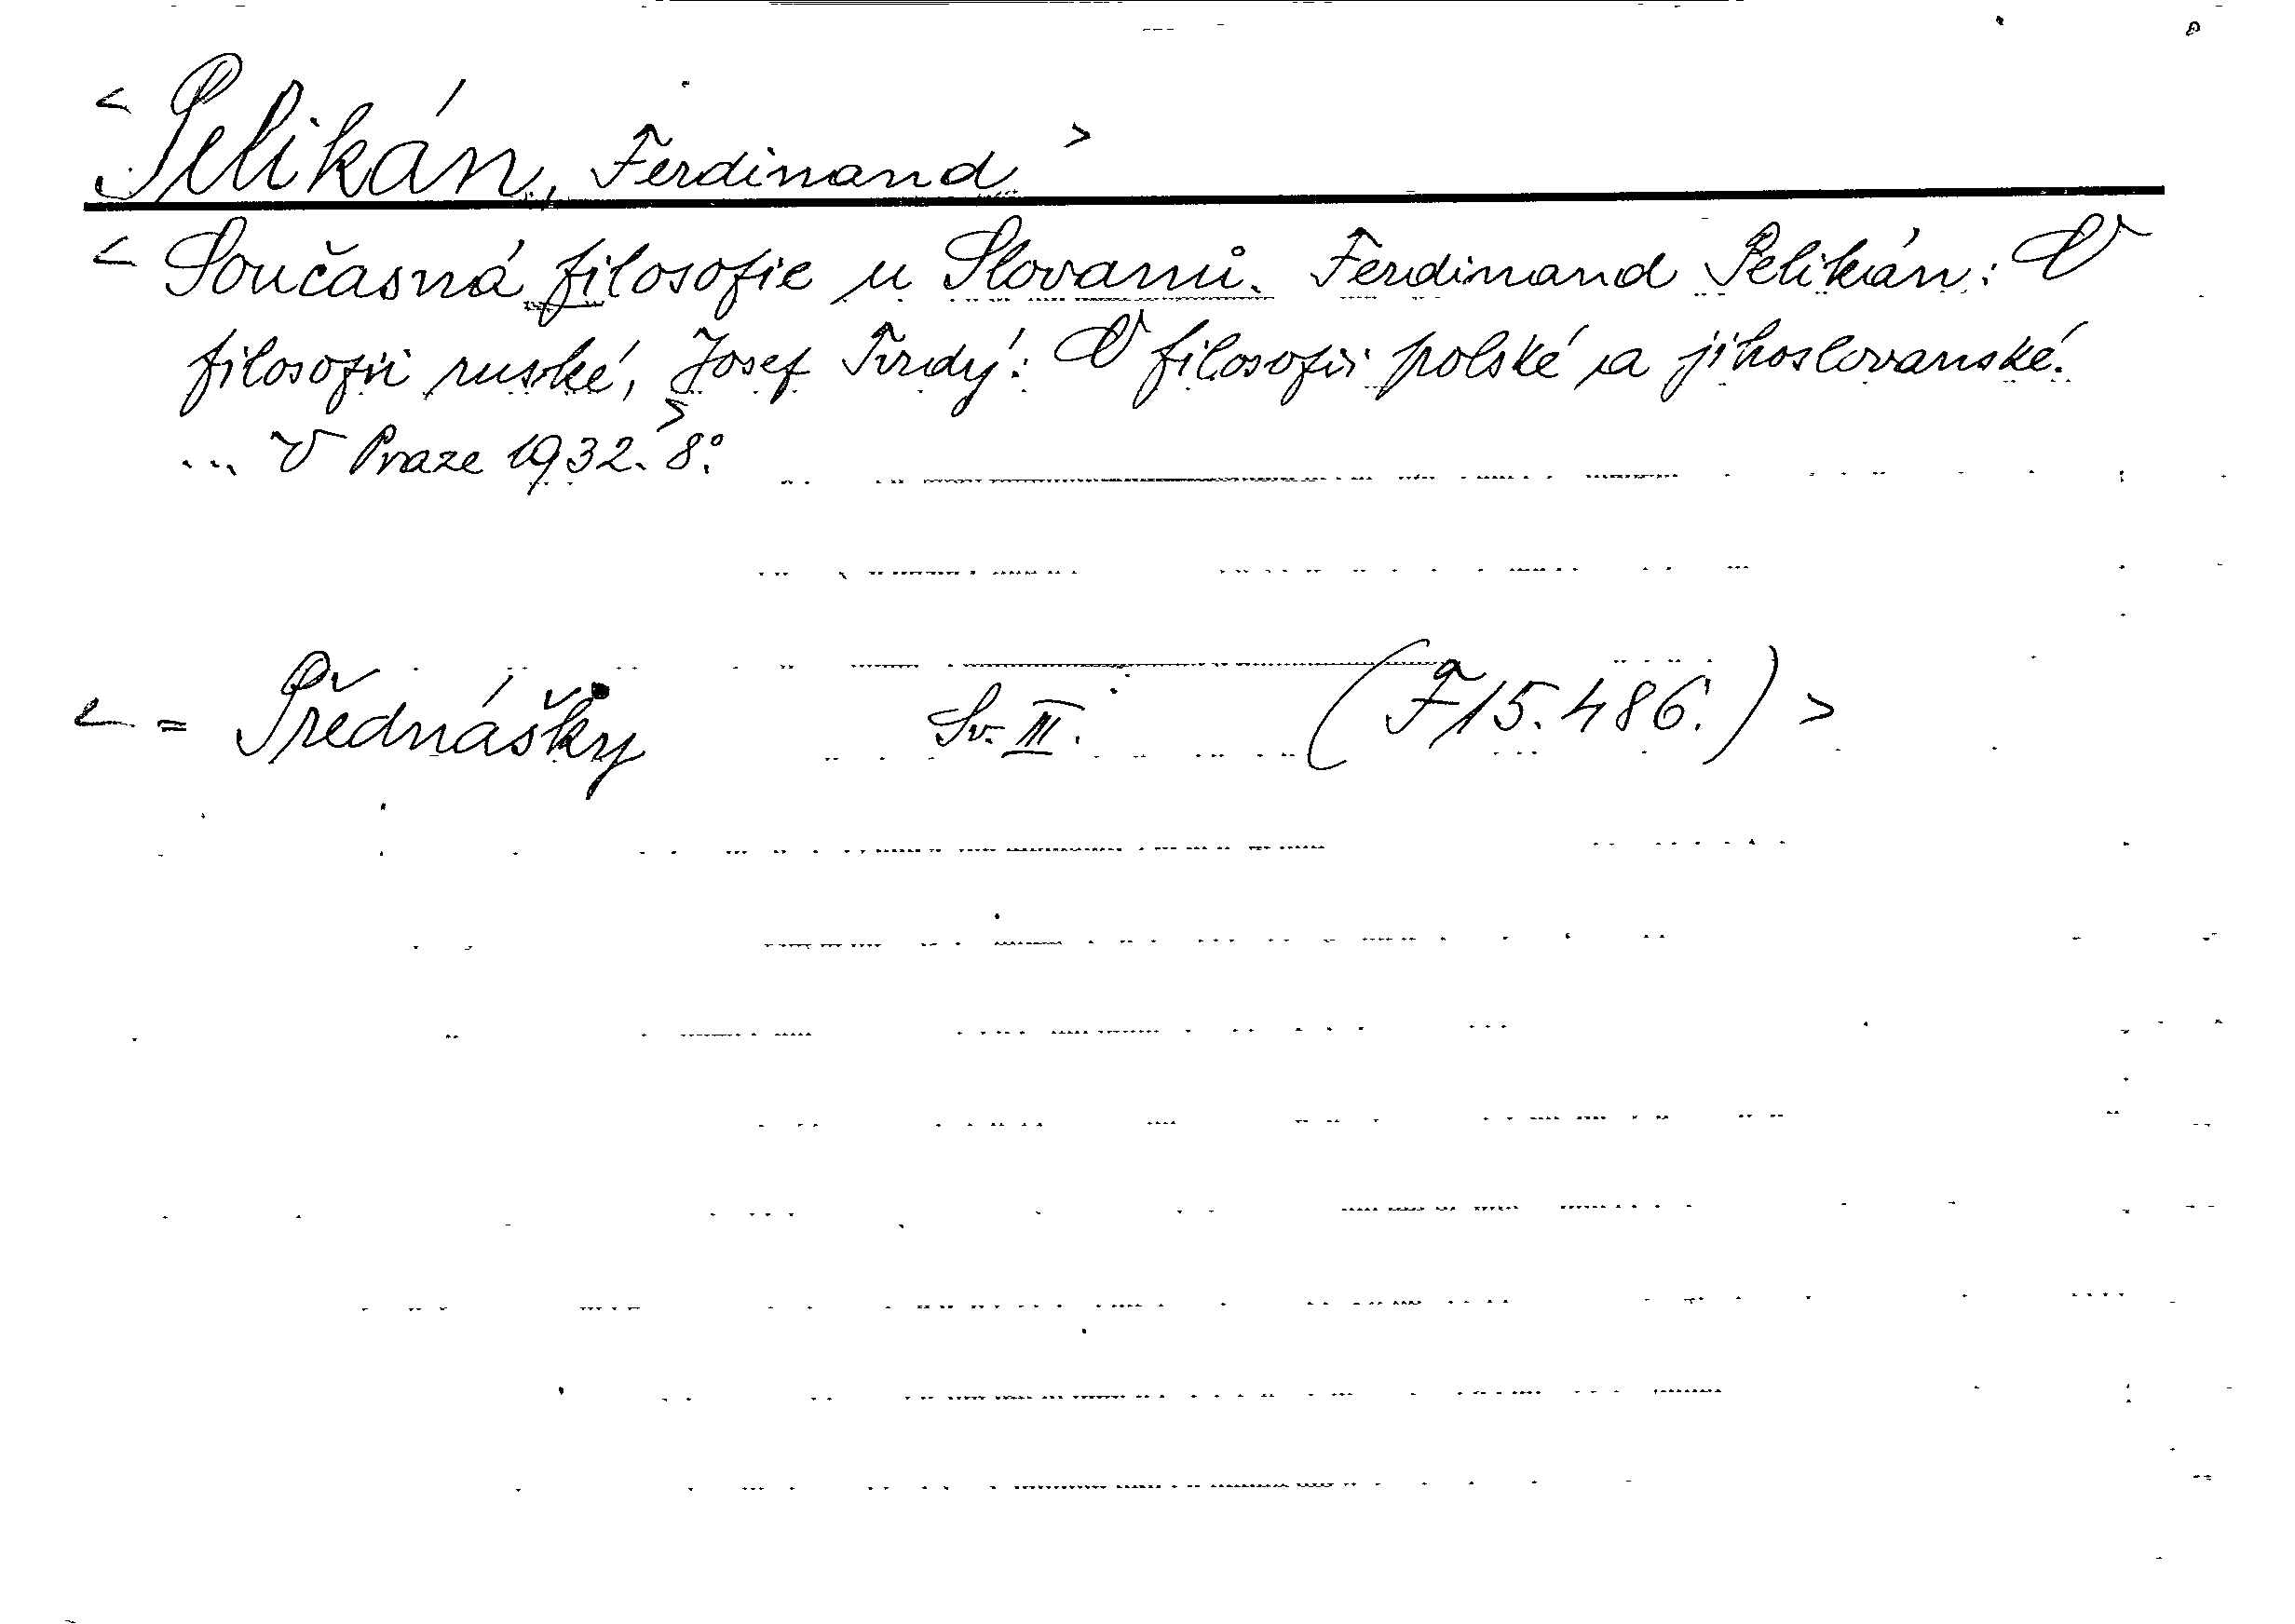 < Pelikán, Ferdinand >
< Současná filosofie u Slovanů. Ferdinand Pelikán: O
filosofii ruské, Josef Tvrdý: O filosofii polské a jihoslovanské.
... V Praze 1932. > 8°.
< = Přednášky Sv. III. (F 15.486.) >